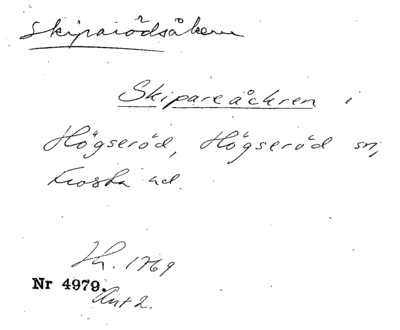 Skiparödsåkern
Skipareåckren i
Högseröd, Högseröd sn,
Frosta hd.
Lh. 1769
Nr 4979.
Akt 2.